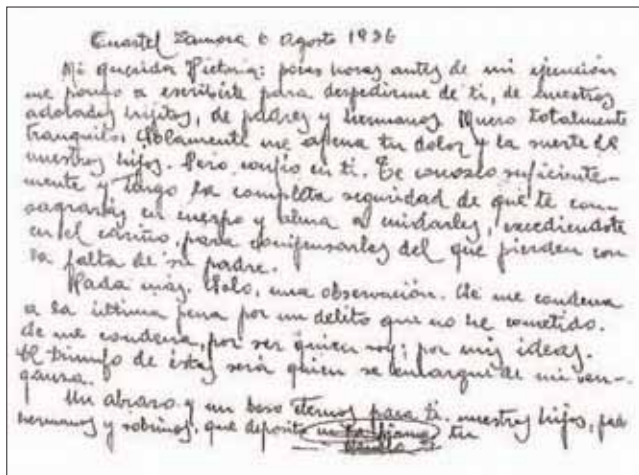 Cuartel Zamora 6 Agosto 1936
Mi querida Victoria: pocas horas antes de mi ejecución
me pongo a escribirte para despedirme de ti, de nuestros
adorados hijitos, de padres y hermanos. Muero totalmente
tranquilo. Solamente me apena tu dolor y la suerte de
nuestros hijos. Pero confío en ti. Te conozco suficiente-
mente y tengo la completa seguridad de que te con-
sagrarás en cuerpo y alma a cuidarles, excediendote
en el cariño, para compensarles del que pierden con
la falta de su padre.
Nada más. Solo, una observación. Se me condena
a la última pena por un delito que no he cometido.
Se me condena, por ser quien soy: por mis ideas.
El triunfo de éstas será quien se encargue de mi ven-
ganza.
Un abrazo y un beso eternos para ti, nuestros hijos,
hermanos y sobrinos, que deposita en tu